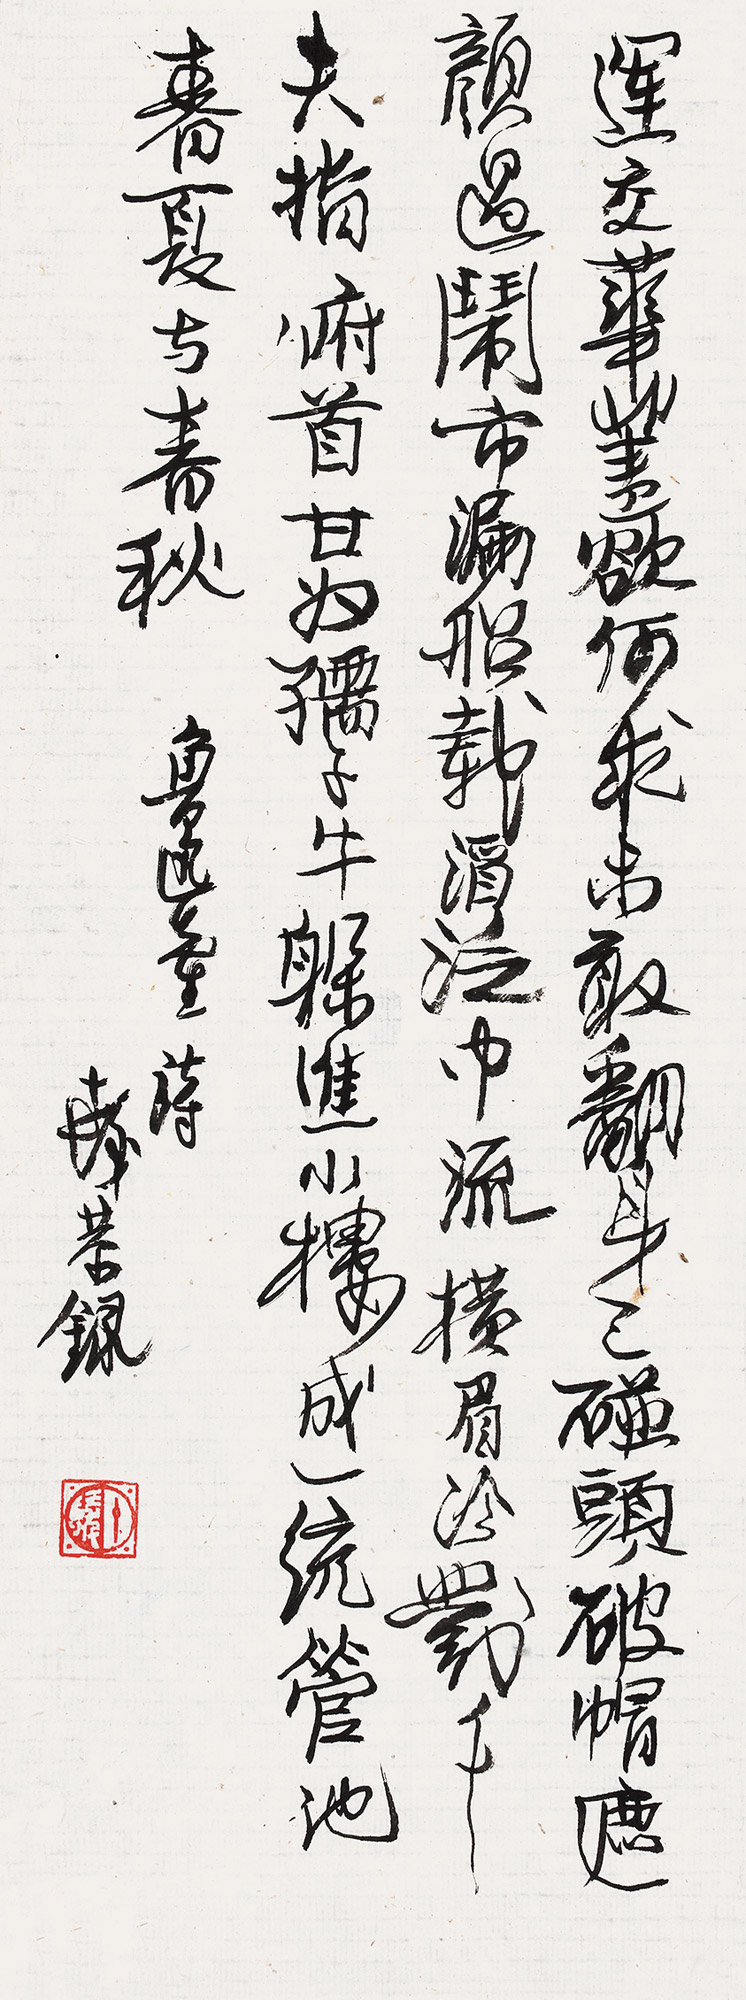 運交華蓋欲何求未敢翻身已碰頭破帽遮
顏過鬧市漏船載酒泛中流橫眉冷對千
夫指俯首甘为孺子牛躲進小樓成一統管池
春夏与春秋
魯迅 詩
恭錄